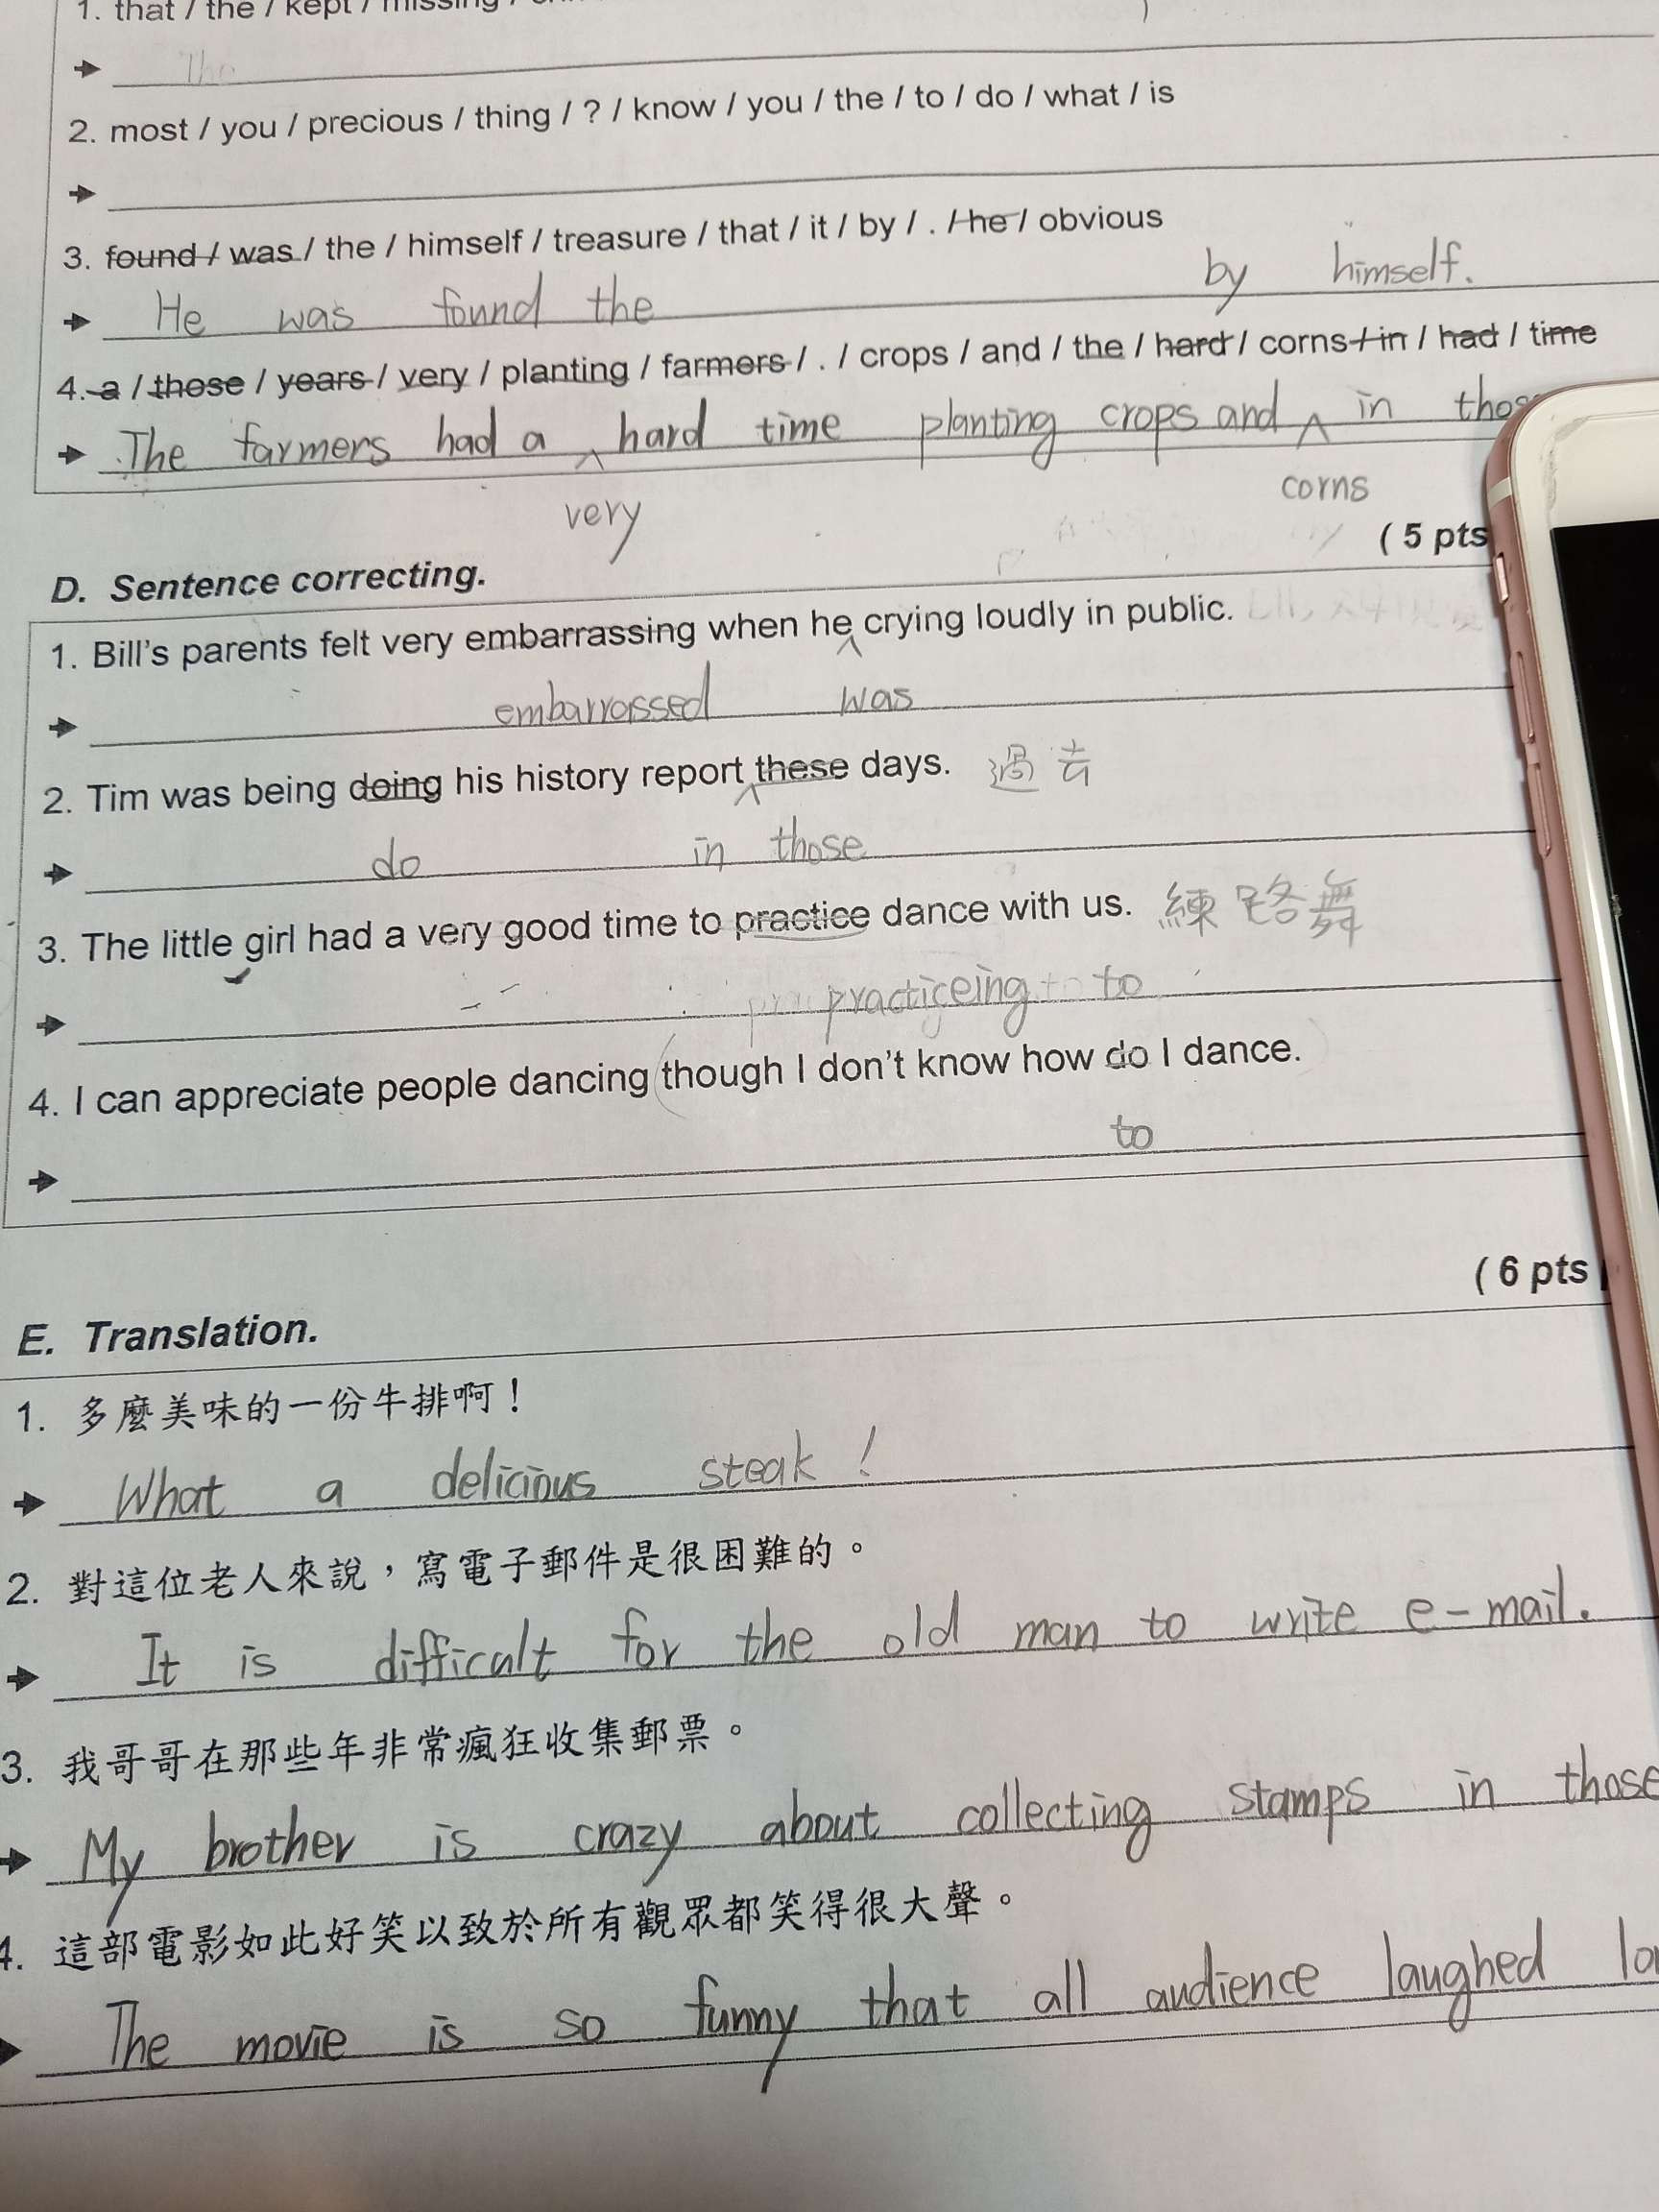 1. that / the / kept / missing /
The
2. most / you / precious / thing / ? / know / you / the / to / do / what / is
3. found / was / the / himself / treasure / that / it / by / . / he / obvious
He was found the by himself.
4. a / those / years / very / planting / farmers / . / crops / and / the / hard / corns / in / had / time
The farmers had a hard time planting crops and in
very corns
( 5 pts
D. Sentence correcting.
1. Bill's parents felt very embarrassing when he crying loudly in public.
embarrassed was
2. Tim was being doing his history report these days. 過去
do in those
3. The little girl had a very good time to practice dance with us. 練跳舞
practiceing to
4. I can appreciate people dancing though I don't know how do I dance.
to
( 6 pts
E. Translation.
1. 多麼美味的一份牛排啊！
What a delicious steak!
2. 對這位老人來說，寫電子郵件是很困難的。
It is difficult for the old man to write e-mail.
3. 我哥哥在那些年非常瘋狂收集郵票。
My brother is crazy about collecting stamps in those
4. 這部電影如此好笑以致於所有觀眾都笑得很大聲。
The movie is so funny that all audience laughed